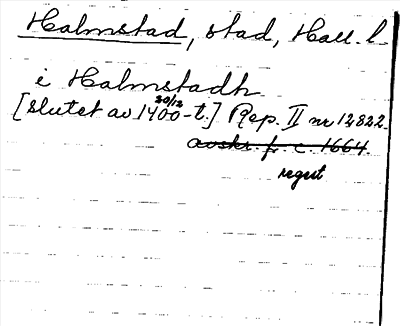 Halmstad, stad, Hall. l.
i Halmstadh
20/12
[slutet av 1400-t.] Rep. II nr 12822.
avskr. fr. c. 1664.
regest